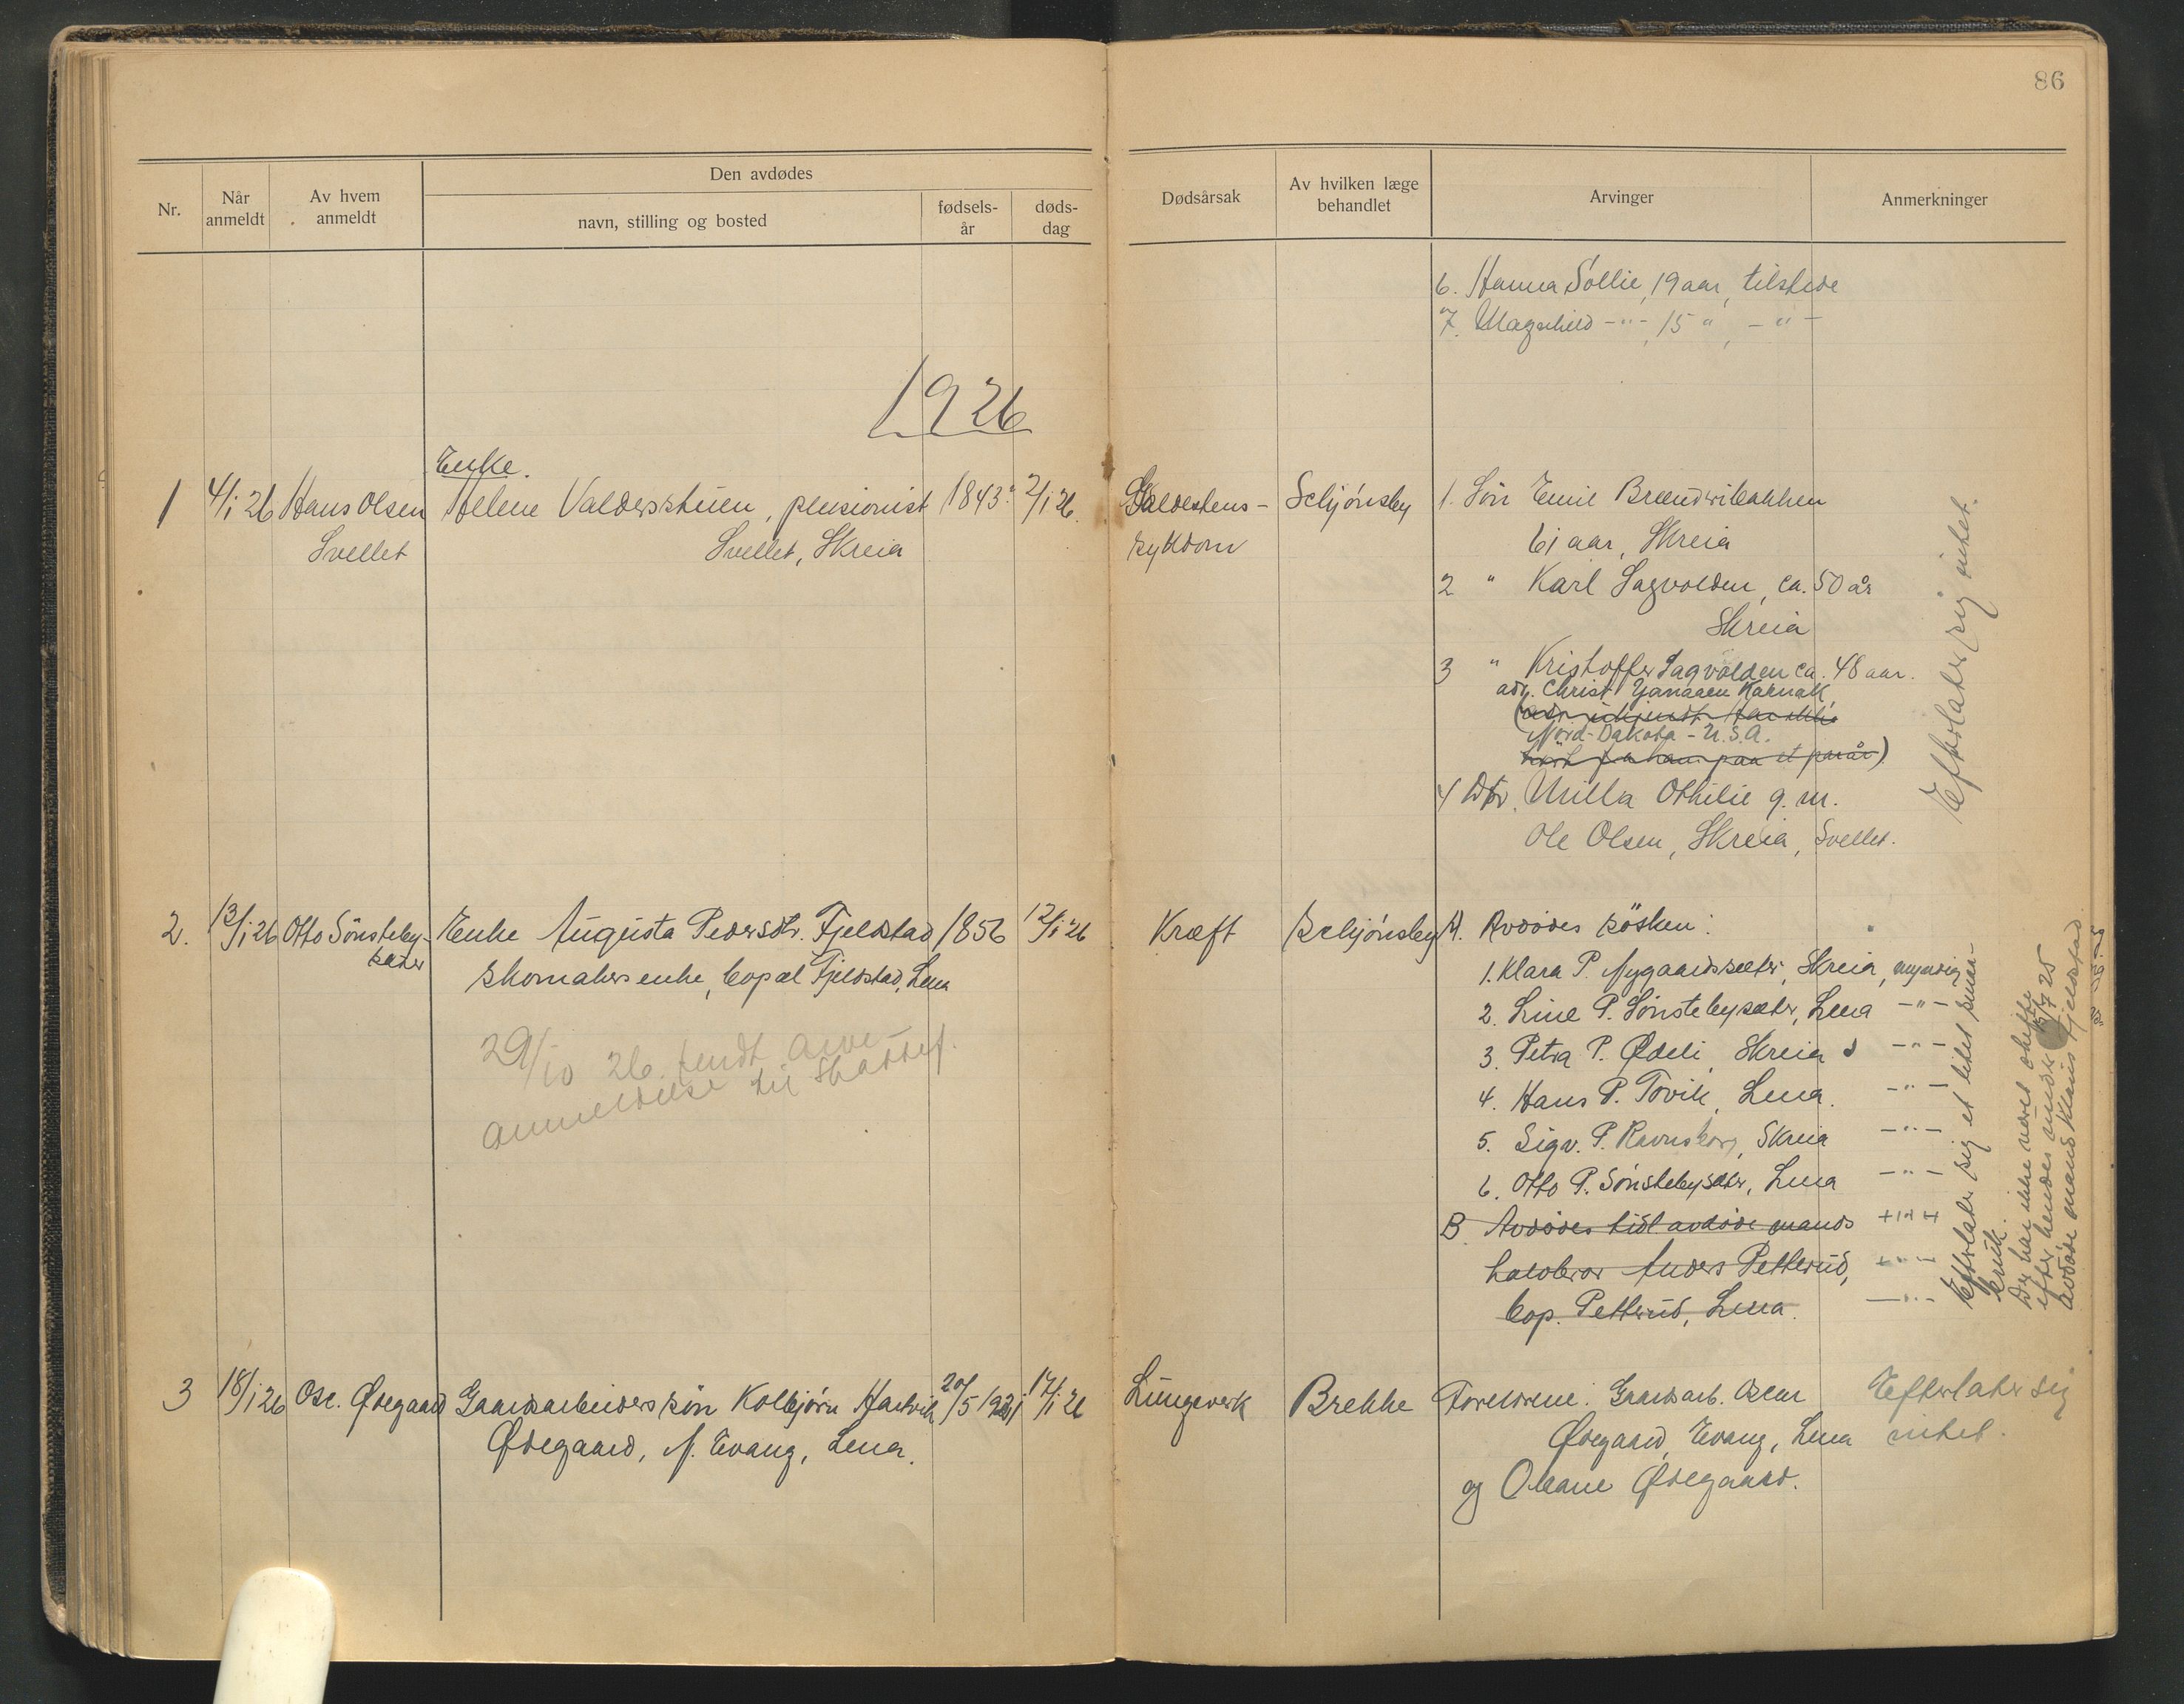 86
Nr.
Når anmeldt
Av hvem anmeldt
Den avdødes
navn, stilling og bosted
fødsels-år
døds-dag
Dødsårsak
Av hvilken læge behandlet
Arvinger
Anmerkninger
6. Hanna Sollie, 19 aar, tilstede
7. Magnhild -"- 15 " -"-
1926
1
4/1 26
Hans Olsen
Svellet
Enke.
Helene Valdersstuen, pensionist
Svellet, Skreia
1843
2/1 26.
Galdestens-
sykdom
Schjønsby
1. Søn Emil
61 aar, Skreia
2 " Karl Sagvolden, ca. 50 år
Skreia
3 " Kristoffer Sagvolden ca. 48 aar.
adr. Christ
Nord-Dakota - U.S.A.
fra ham paa et par år)
4 Dtr. Milla Othilie g. m.
Ole Olsen, Skreia, Svellet.
Efterlater sig intet.
2.
13/1 26
Otto Sønsteby-
sæter
Enke Augusta Pedersdtr. Fjeldstad
skomakerenke, bopæl Fjeldstad, Lena
29/10 26 sendt arve-
anmeldelse til Skattef.
1856
12/1 26
Kræft
Schjønsby
A. Avdødes søsken:
1. Klara P. Nygaardssæter, Skreia, myndig
2. Line P. Sønstebysæter, Lena -"-
3. Petra P. Ødeli, Skreia -"-
4. Hans P. Tovik, Lena. -"-
5. Sigv. P. Ravnsborg, Skreia -"-
6. Otto P. Sønstebysæter, Lena -"-
B. Avdødes tidl avdøde mands -"-
halvbror Anders Petterud, -"-
bop. Petterud, Lena. -"-
Efterlater sig et litet smaa-
bruk.
Der har ikke været skifte
efter hendes under 5/7 25
avdøde mand Klaus Fjeldstad
3
18/1 26
Osc. Ødegaard
Gaardsarbeiders søn Kolbjørn Hartvik
Ødegaard, N. Evang, Lena.
20/5 1921
17/1 26
Lungeverk
Brekke
Forældrene: Gaardsarb. Oscar
Ødegaard, Evang, Lena
og Oleane Ødegaard.
Efterlater sig
intet.